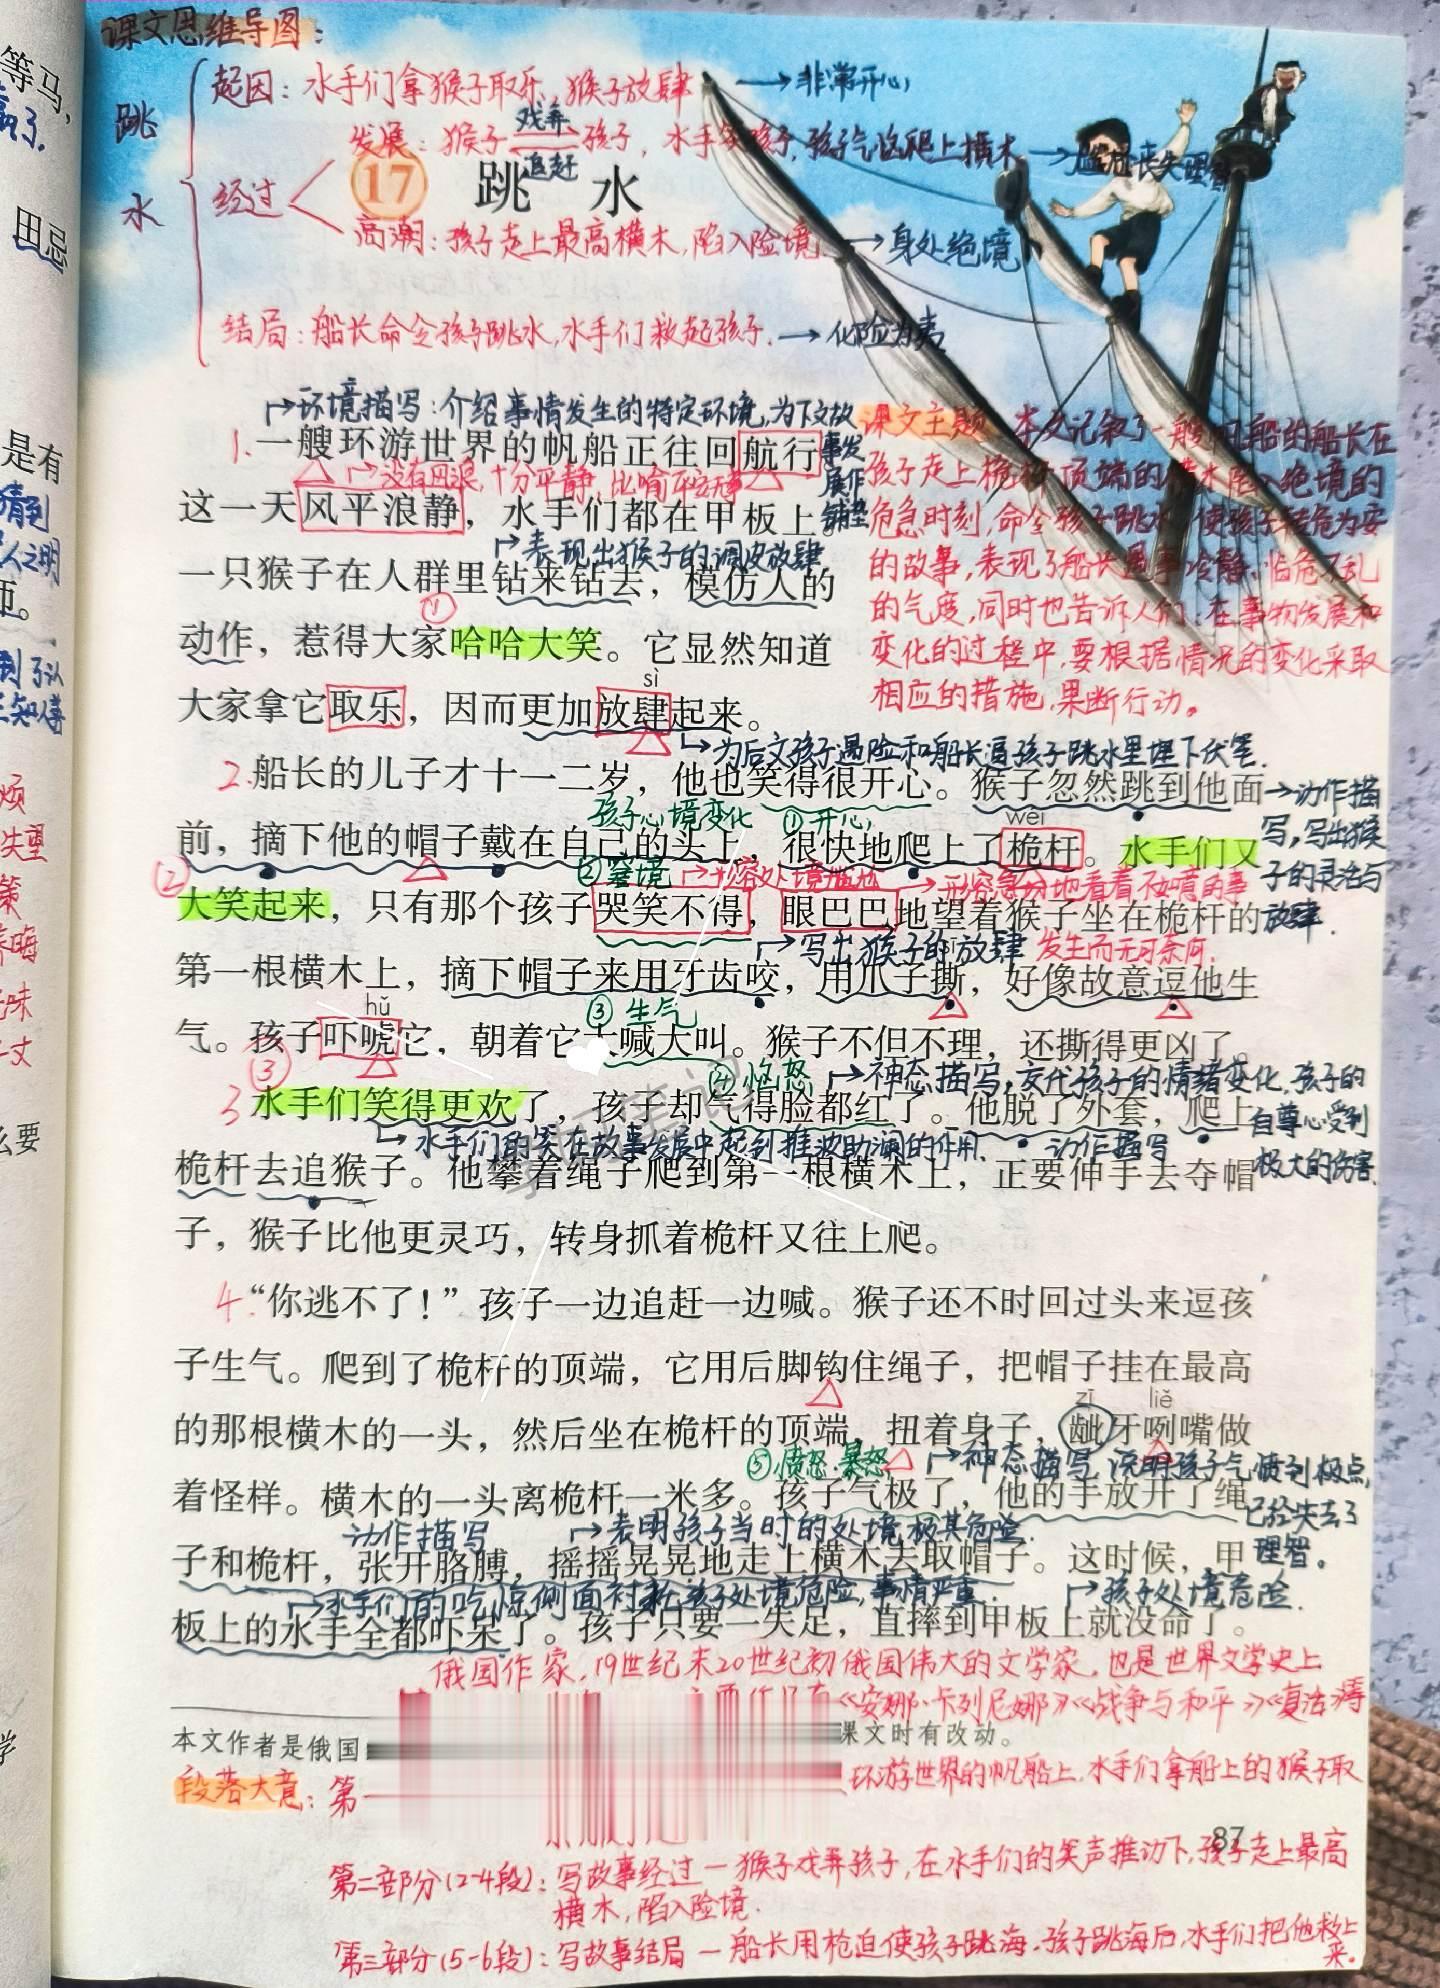 课文思维导图：
跳水
起因：水手们拿猴子取乐,猴子放肆 →非常开心
经过
发展：猴子 戏弄 追赶 孩子，水手笑孩子,孩子气恼爬上横木→
17 跳水
高潮：孩子走上最高横木,陷入险境.→身处绝境
结局：船长命令孩子跳水,水手们救起孩子.→化险为夷
环境描写：介绍事情发生的特定环境,为下文故事发展作铺垫
课文主题 本文记叙了一艘帆船的船长在
孩子走上桅杆顶端的横木陷入绝境的
危急时刻,命令孩子跳水,使孩子转危为安
的故事,表现了船长遇事冷静、临危不乱
的气度,同时也告诉人们：在事物发展和
变化的过程中,要根据情况的变化采取
相应的措施,果断行动。
1.一艘环游世界的帆船正往回航行
没有风浪,十分平静,比喻平安无事
这一天风平浪静，水手们都在甲板上。
表现出猴子的调皮放肆
一只猴子在人群里钻来钻去，模仿人的
①
动作，惹得大家哈哈大笑。它显然知道
sì
大家拿它取乐，因而更加放肆起来。
为后文孩子遇险和船长逼孩子跳水里埋下伏笔.
2.船长的儿子才十一二岁，他也笑得很开心。猴子忽然跳到他面
→动作描写,写出猴子的灵活与放肆.
孩子心境变化 ①开心
wéi
前，摘下他的帽子戴在自己的头上，很快地爬上了桅杆。水手们又
② ②窘境 形容处境尴尬 →形容急切地看着不如愿的事
大笑起来，只有那个孩子哭笑不得，眼巴巴地望着猴子坐在桅杆的
写出猴子的放肆 发生而无可奈何.
sī
第一根横木上，摘下帽子来用牙齿咬，用爪子撕，好像故意逗他生
hǔ ③生气
气。孩子吓唬它，朝着它大喊大叫。猴子不但不理，还撕得更凶了。
③ ④恼怒 神态描写,交代孩子的情绪变化,孩子的自尊心受到极大的伤害.
3水手们笑得更欢了，孩子却气得脸都红了。他脱了外套，爬上
水手们的笑在故事发展中起到推波助澜的作用. 动作描写
桅杆去追猴子。他攀着绳子爬到第一根横木上，正要伸手去夺帽
子，猴子比他更灵巧，转身抓着桅杆又往上爬。
4.“你逃不了！”孩子一边追赶一边喊。猴子还不时回过头来逗孩
子生气。爬到了桅杆的顶端，它用后脚钩住绳子，把帽子挂在最高
zī liě
的那根横木的一头，然后坐在桅杆的顶端，扭着身子，龇牙咧嘴做
⑤愤怒、暴怒 神态描写,说明孩子气愤到极点,已经失去了理智。
着怪样。横木的一头离桅杆一米多。孩子气极了，他的手放开了绳
动作描写 表明孩子当时的处境极其危险.
子和桅杆，张开胳膊，摇摇晃晃地走上横木去取帽子。这时候，甲
水手们的吃惊侧面衬托孩子处境危险,事情严重. 孩子处境危险.
板上的水手全都吓呆了。孩子只要一失足，直摔到甲板上就没命了。
俄国作家,19世纪末20世纪初俄国伟大的文学家,也是世界文学史上
《安娜·卡列尼娜》《战争与和平》《复活》等
本文作者是俄国
课文时有改动。
段落大意：第一
环游世界的帆船上,水手们拿船上的猴子取
87
第二部分(2-4段)：写故事经过—猴子戏弄孩子,在水手们的笑声推动下,孩子走上最高
横木,陷入险境.
第三部分(5-6段)：写故事结局—船长用枪迫使孩子跳海.孩子跳海后,水手们把他救上
来。